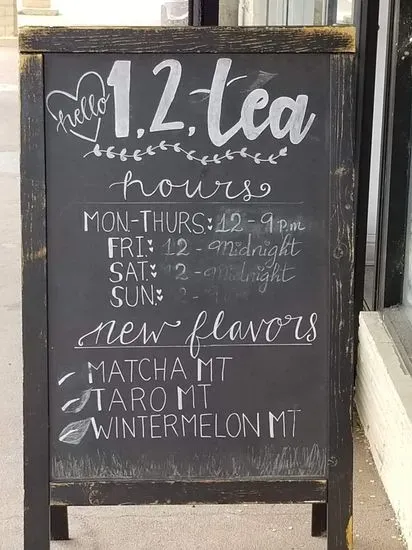 hello
1, 2, tea
hours
MON-THURS: 12 - 9 pm
FRI: 12 - midnight
SAT: 12 - midnight
SUN: 2 -
new flavors
MATCHA MT
TARO MT
WINTERMELON MT